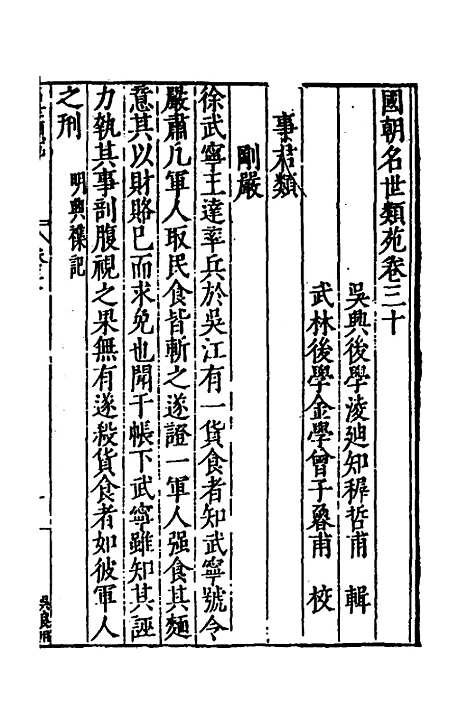 國朝名世類苑卷三十
吳興後學淩迪知穉哲甫 輯
武林後學金學曾子魯甫 校
事君類
剛嚴
徐武寧王達率兵於吳江有一貨食者知武寧號令
嚴肅凡軍人取民食皆斬之遂證一軍人强食其麵
意其以財賂已而求免也聞于帳下武寧雖知其誣
力執其事剖腹視之果無有遂殺貨食者如彼軍人
之刑 明興襍記